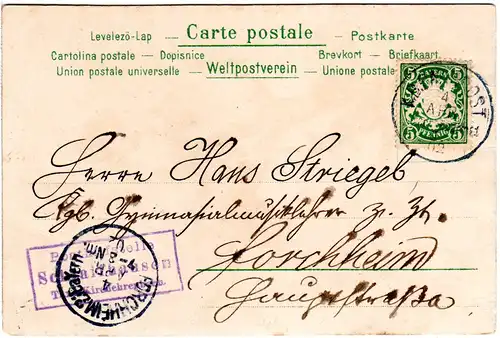 Carte postale
Levelező-Lap
Postkarte
Cartolina postale – Dopisnice
Brevkort – Briefkaart.
Union postale universelle
Weltpostverein
Unione postale
BAYERN
5 5
PFENNIG
Herrn Hans Striegel
Kgl. Gymnasialmusiklehrer z. Zt.
Forchheim
Hauptstraße
FORCHHEIM Bayern
4 APR